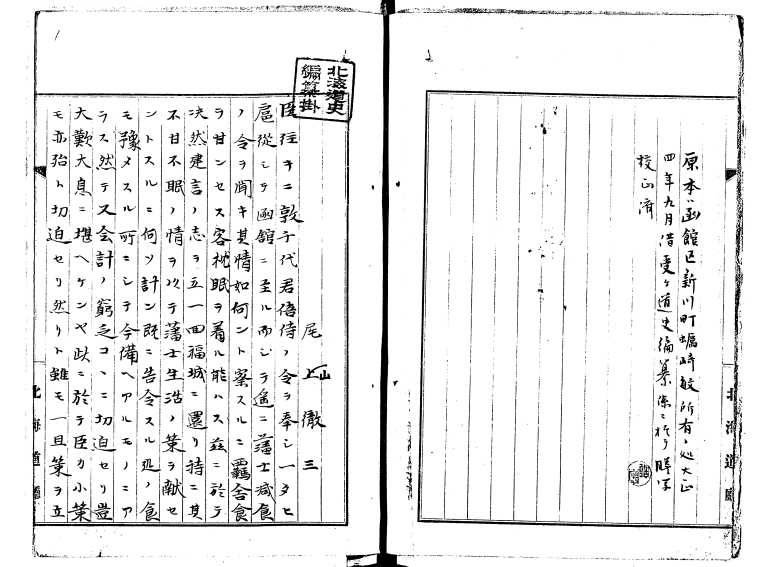 原本ハ函館区新川町蠣崎敏所有ノ処大正
四年九月借受ケ道史編纂係ニ於テ謄写
校正済
北海道廳
北海道史
編纂掛
尾山徹三
上
臣往キニ敦千代君倍侍ノ令ヲ奉シ一タヒ
扈従シテ函館ニ至ル而シテ遙ニ藩士減食
ノ令ヲ聞キ其情如何ント察スルニ羈舎食
ヲ甘ンセス客枕眠ヲ着ル能ハス茲ニ於テ
决然建言ノ志ヲ立一回福城ニ還リ待ニ其
不甘不眠ノ情ヲ以テ藩士生活ノ策ヲ献セ
ントスルニ何ソ計ン既ニ告令スル処ノ食
モ豫メスル所ニシテ今備ヘアルモノニア
ラス然テ又会計ノ窮乏コヽニ切迫セリ豈
大歎大息ニ堪ヘケンヤ此ニ於テ臣カ小策
モ亦殆ト切迫セリ然リト雖モ一旦策ヲ立
北海道廳